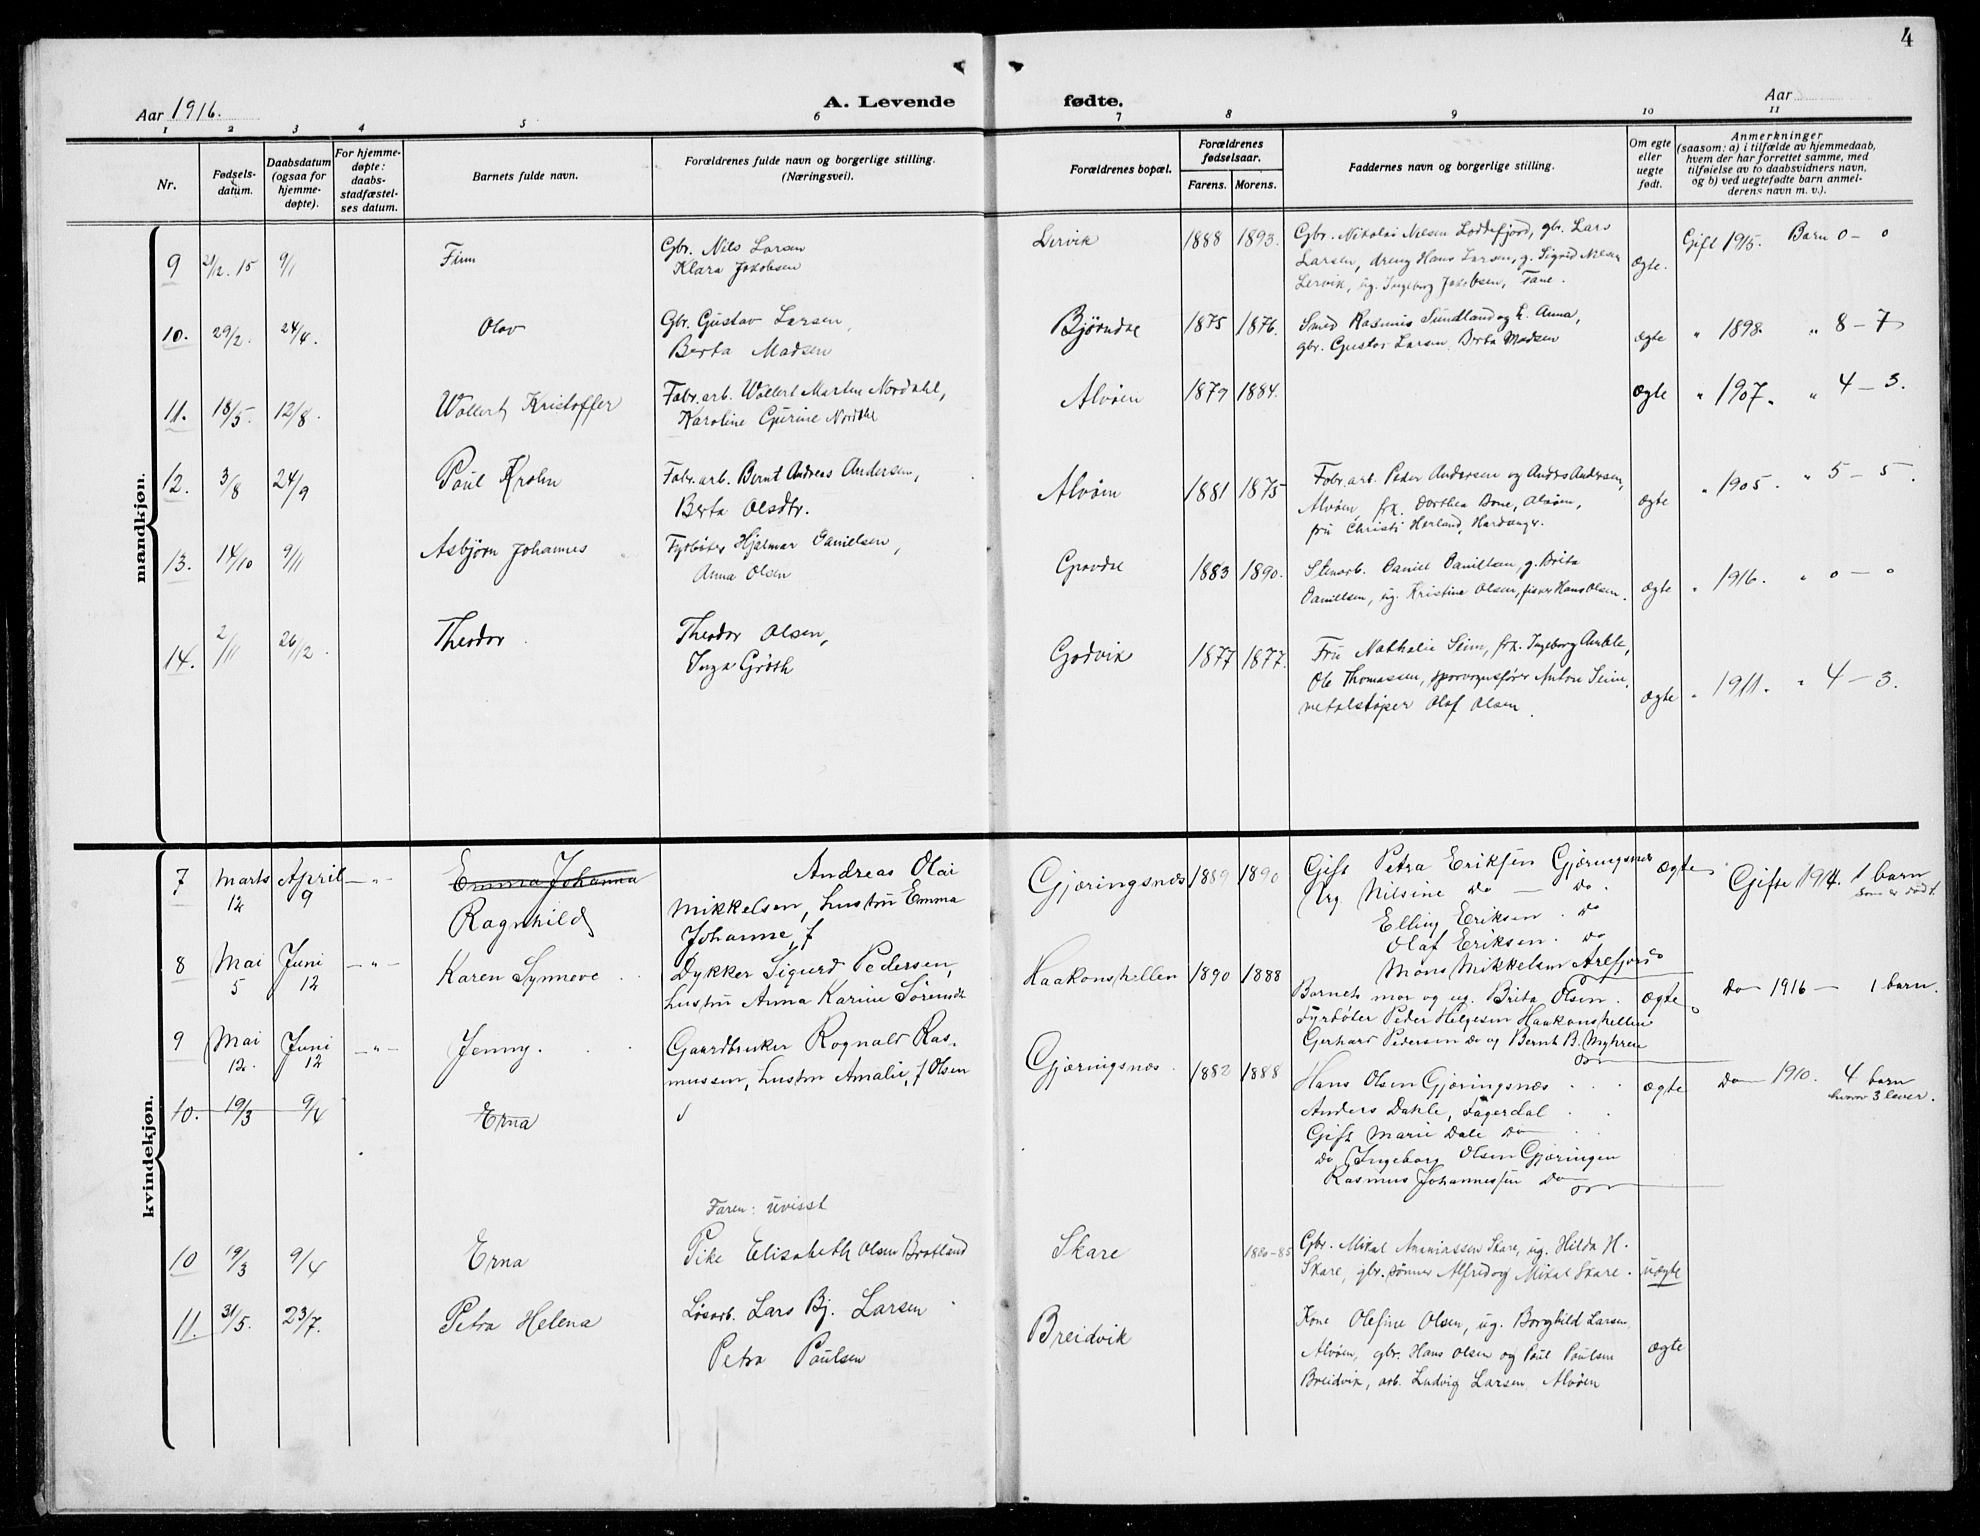 4
Aar 1916.
A. Levende fødte.
Aar
1 2 3 4 5 6 7 8 9 10 11
Nr.
Fødsels-
datum.
Daabsdatum
(ogsaa for
hjemme-
døpte).
For hjemme-
døpte:
daabs-
stadfæstel-
ses datum.
Barnets fulde navn.
Forældrenes fulde navn og borgerlige stilling.
(Næringsvei).
Forældrenes bopæl.
Forældrenes
fødselsaar.
Farens. Morens.
Faddernes navn og borgerlige stilling.
Om egte
eller
uegte
født.
Anmerkninger
(saasom: a) i tilfælde av hjemmedaab,
hvem der har forrettet samme, med
tilføielse av to daabsvidners navn,
og b) ved uegtefødte barn anmel-
derens navn m. v.).
mandkjøn.
9 21/12. 15 9/1 Finn
Gbr. Nils Larsen
Klara Jakobsen
Lervik 1888 1893.
Gbr. Nikolai Nilsen Loddefjord, gbr. Lars
Larsen, dreng Hans Larsen, g. Sigrid Nilsen
Lervik, ug. Ingeborg Jakobsen, Fane.
ægte.
Gift 1915. Barn 0 — 0
10. 29/2. 24/4. Olav
Gbr. Gustav Larsen,
Berta Madsen
Bjørndal 1875 1876.
Smed Rasmus Sundland og h. Anna,
gbr. Gustav Larsen, Berta Madsen
ægte " 1898. " 8 — 7
11. 18/5. 12/8. Wollert Kristoffer
Fabr. arb. Wollert Martin Nordahl,
Karoline Gurine Nordahl
Alvøen 1879 1884.
ægte " 1907. " 4 — 3.
12. 3/8 24/9 Paul Krohn
Fabr. arb. Bernt Andreas Andersen,
Berta Olsdtr.
Alvøen 1881 1875
Fabr. arb. Peder Andersen og Anders Andersen,
Alvøen, frk. Dorthea Bone, Alvøen,
fru Christi Herland, Hardanger.
ægte " 1905. " 5 — 5.
13. 14/10 9/11 Asbjørn Johannes
Fyrbøter Hjalmar Danielsen,
Anna Olsen
Gravdal 1883 1890.
Stenarb. Daniel Danielsen, g. Brita
Danielsen, ug. Kristine Olsen, fisker Hans Olsen.
ægte " 1916. " 0 — 0
14. 2/11 26/12. Theodor
Theodor Olsen,
Inga Grøsth
Godvik 1877 1877.
Fru Nathalie Seim, frk. Ingeborg Amble,
Ole Thomassen, sporvognsfører Anton Seim,
metalstøper Olaf Olsen.
ægte " 1911. " 4 — 3.
kvindekjøn.
7 Marts 12 April 9 — " — Emma Johanna
Ragnhild
Andreas Olai
Mikkelsen, hustru Emma
Johanne, f
Gjæringsnes 1889 1890
Gift Petra Eriksen Gjæringsnes
Ug Nilsine do — do.
Elling Eriksen. do
Olaf Eriksen. do
Mons Mikkelsen Arefjord
ægte
Gifte 1914. 1 barn
som er død.
8 Mai 5 Juni 12 — " — Karen Synneve
Dykker Sigurd Pedersen,
hustru Anna Karine Sørensdt
Haakonshellen 1890 1888
Barnets mor og ug. Brita Olsen.
Fyrbøter Peder Helgesen Haakonshellen
Gerhard Pedersen do og Bernt B. Myhren
ægte
Do 1916 — 1 barn.
9 Mai 12. Juni 12 — " — Jenny.
Gaardbruker Rognald Ras-
mussen, hustru Amalie, f Olsen
Gjæringsnes. 1882 1888
Hans Olsen Gjæringsnes
Anders Dahle, Fagerdal
Gift Marie Dale Do
Do Ingeborg Olsen Gjæringen
Rasmus Johannessen Do
ægte
Do 1910. 4 barn
hvorav 3 lever.
10. 19/3 9/4 Erna
10 19/3 9/4 Erna
Faren: uvisst
Pike Elisabeth Olsen Bratland
Skare 1880-85
Gbr. Mikal Ananiassen Skare, ug. Hilda H.
Skare, gbr. sønner Alfred og Mikal Skare.
uægte
11. 31/5. 23/7. Petra Helena
Løsarb. Lars Bj. Larsen
Petra Paulsen
Breidvik
Kone Olefine Olsen, ug. Borghild Larsen,
Alvøen, gbr. Hans Olsen og Paul Paulsen
Breidvik, arb. Ludvig Larsen, Alvøen
ægte